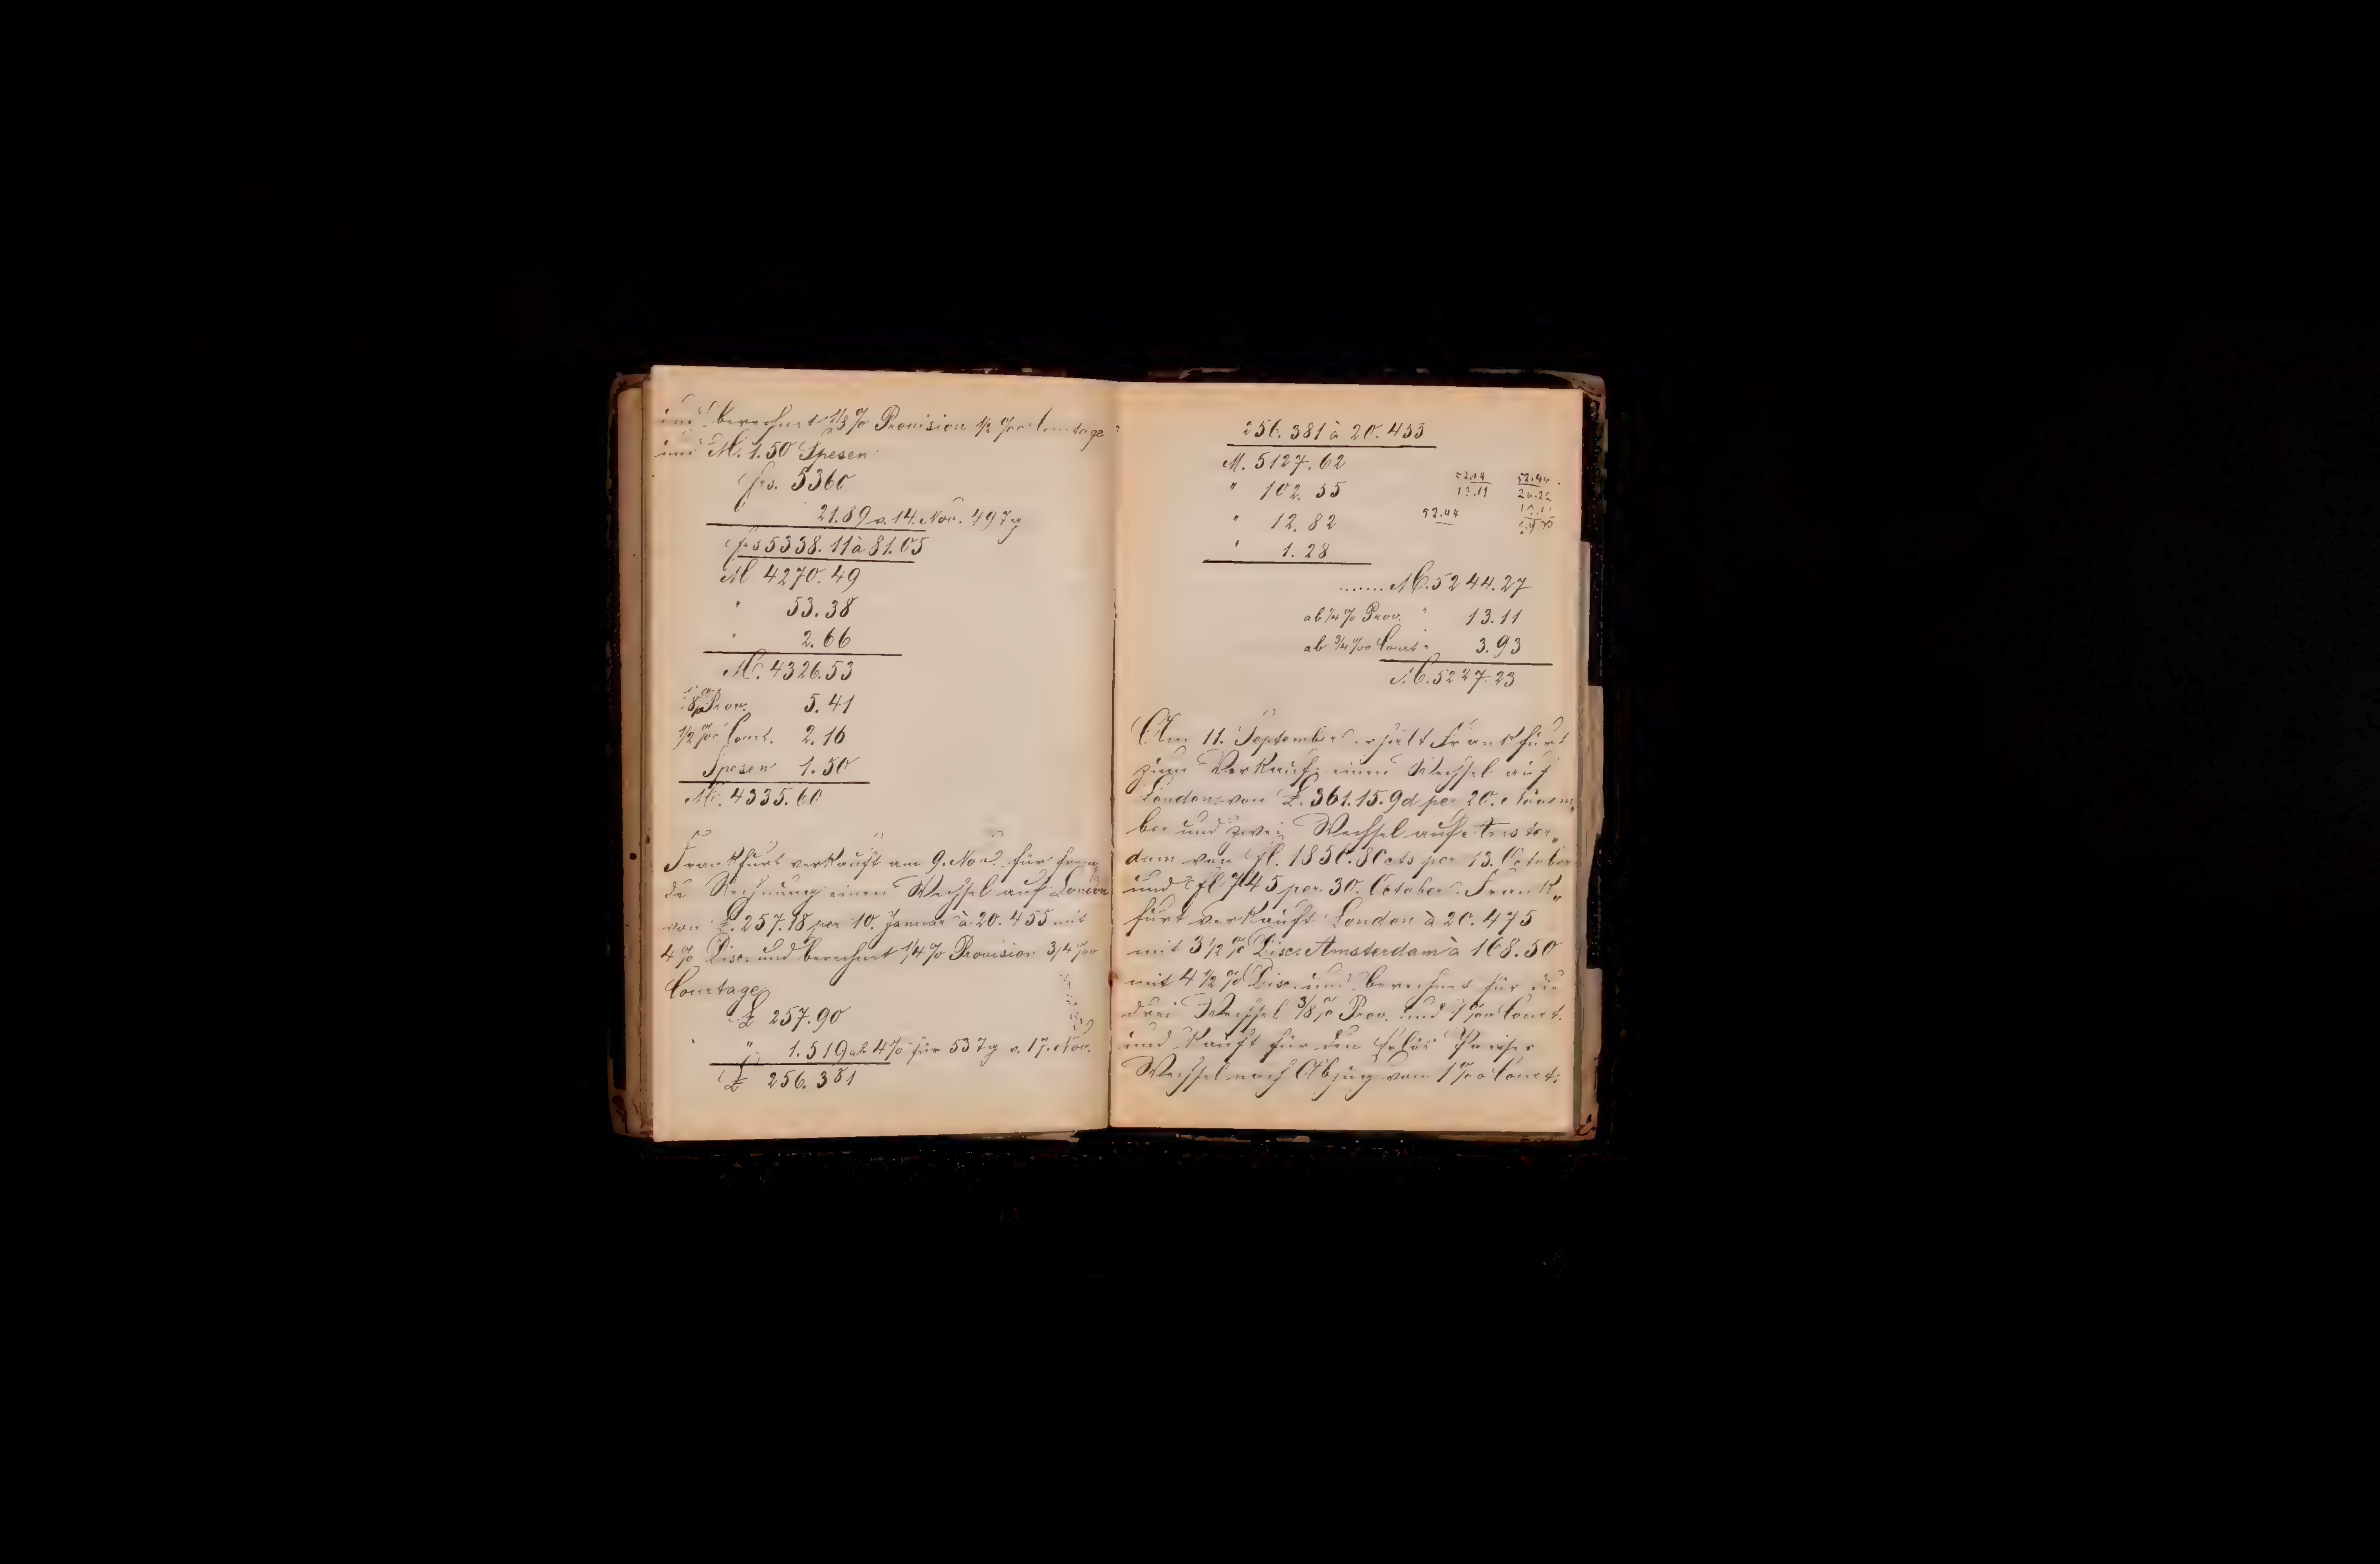 und berechnet 1/8 % Provision 1/2 %oo Courtage
und M. 1.50 Spesen
frs. 5360
21.89 v. 14. Nov. 49 Tg
frs 5338.11 à 81.05
M 4270.49
" 53.38
" 2.66
M. 4326.53
1/8 % Prov. 5.41
1/2 %oo Court. 2.16
Spesen 1.50
M. 4335.60
Frankfurt verkauft am 9. Nov. für frem„
de Rechnung einen Wechsel auf London
von £. 257.18 per 10. Januar à 20.455 mit
4 % Disc. und berechnet 1/4 % Provision 3/4 %oo
Courtage
£ 257.90
" 1.519 ab 4 % für 53 Tg v. 17. Nov.
£ 256.381
256.381 à 20.455
M. 5127.62
" 102.55
" 12.82
" 1.28
....... M. 5244.27
ab 1/4 % Prov. " 13.11
ab 3/4 %oo Court " 3.93
M. 5227.23
52.44
13.11
52.44
52.44
26.22
Am 11. September erhält Frankfurt
zum Verkauf einen Wechsel auf
London von £. 361.15.9d per 20. Novem„
ber und zwei Wechsel auf Amster„
dam von fl. 1850.80cts per 13. October
und fl. 745 per 30. October. Frank„
furt verkauft London à 20.475
mit 3 1/2 % Disc. Amsterdam à 168.50
mit 4 1/2 % Disc. und berechnet für die
drei Wechsel 3/8 % Prov. und 1 %oo Court.
und kauft für den Erlös Pariser
Wechsel nach Abzug vom 1 %oo Court.